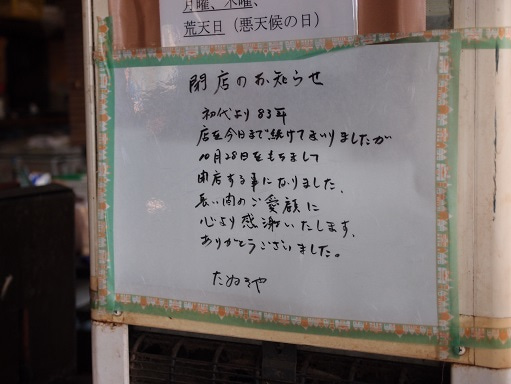 月曜、木曜、
荒天日（悪天候の日）
閉店のお知らせ
初代より83年
店を今日まで続けてまいりましたが
10月28日をもちまして
閉店する事になりました、
長い間のご愛顧に
心より感激いたします、
ありがとうございました。
たぬきや